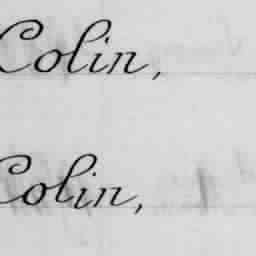 Colin,
Colin,